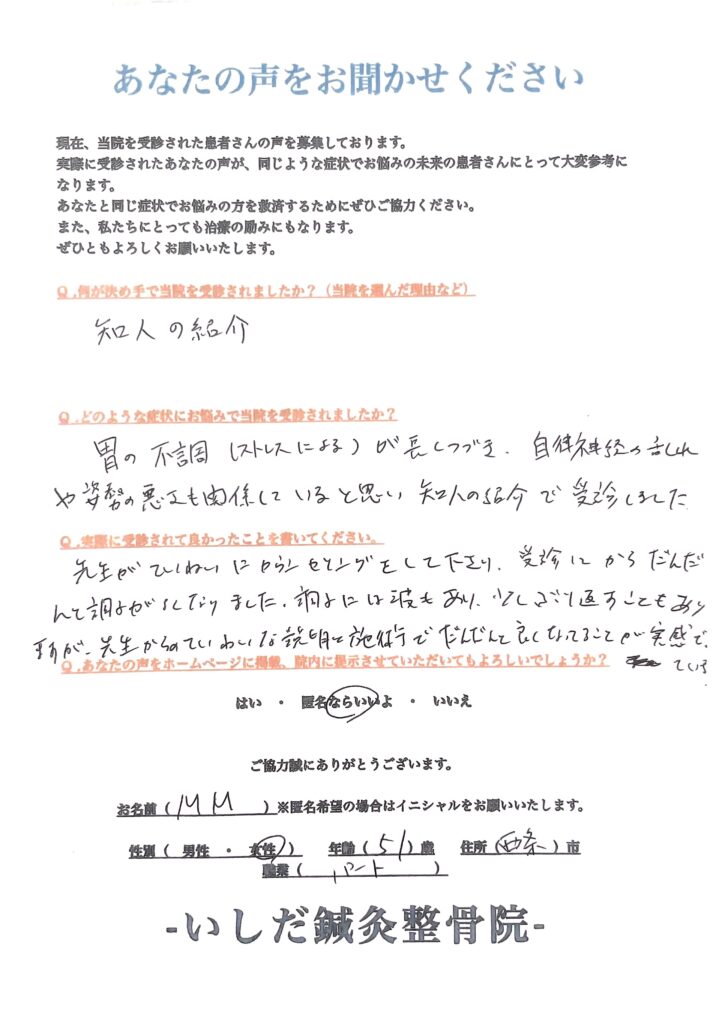 あなたの声をお聞かせください
現在、当院を受診された患者さんの声を募集しております。
実際に受診されたあなたの声が、同じような症状でお悩みの未来の患者さんにとって大変参考に
なります。
あなたと同じ症状でお悩みの方を救済するためにぜひご協力ください。
また、私たちにとっても治療の励みにもなります。
ぜひともよろしくお願いいたします。
Q.何が決め手で当院を受診されましたか？（当院を選んだ理由など）
知人の紹介
Q.どのような症状にお悩みで当院を受診されましたか？
胃の不調（ストレスによる）が長くつづき、自律神経の乱れ
や姿勢の悪さも関係していると思い知人の紹介で受診しました
Q.実際に受診されて良かったことを書いてください。
先生がていねいにカウンセリングをして下さり、受診してからだんだ
んと調子がよくなりました。調子には波もあり、少しぶり返すこともあり
ますが、先生からのていねいな説明と施術でだんだんと良くなってることが実感で
ている
Q.あなたの声をホームページに掲載、院内に提示させていただいてもよろしいでしょうか？
はい ・ 匿名ならいいよ ・ いいえ
ご協力誠にありがとうございます。
お名前（ MM ）※匿名希望の場合はイニシャルをお願いいたします。
性別（ 男性 ・ 女性 ） 年齢（ 51 ）歳 住所（西条）市
職業（ パート ）
-いしだ鍼灸整骨院-